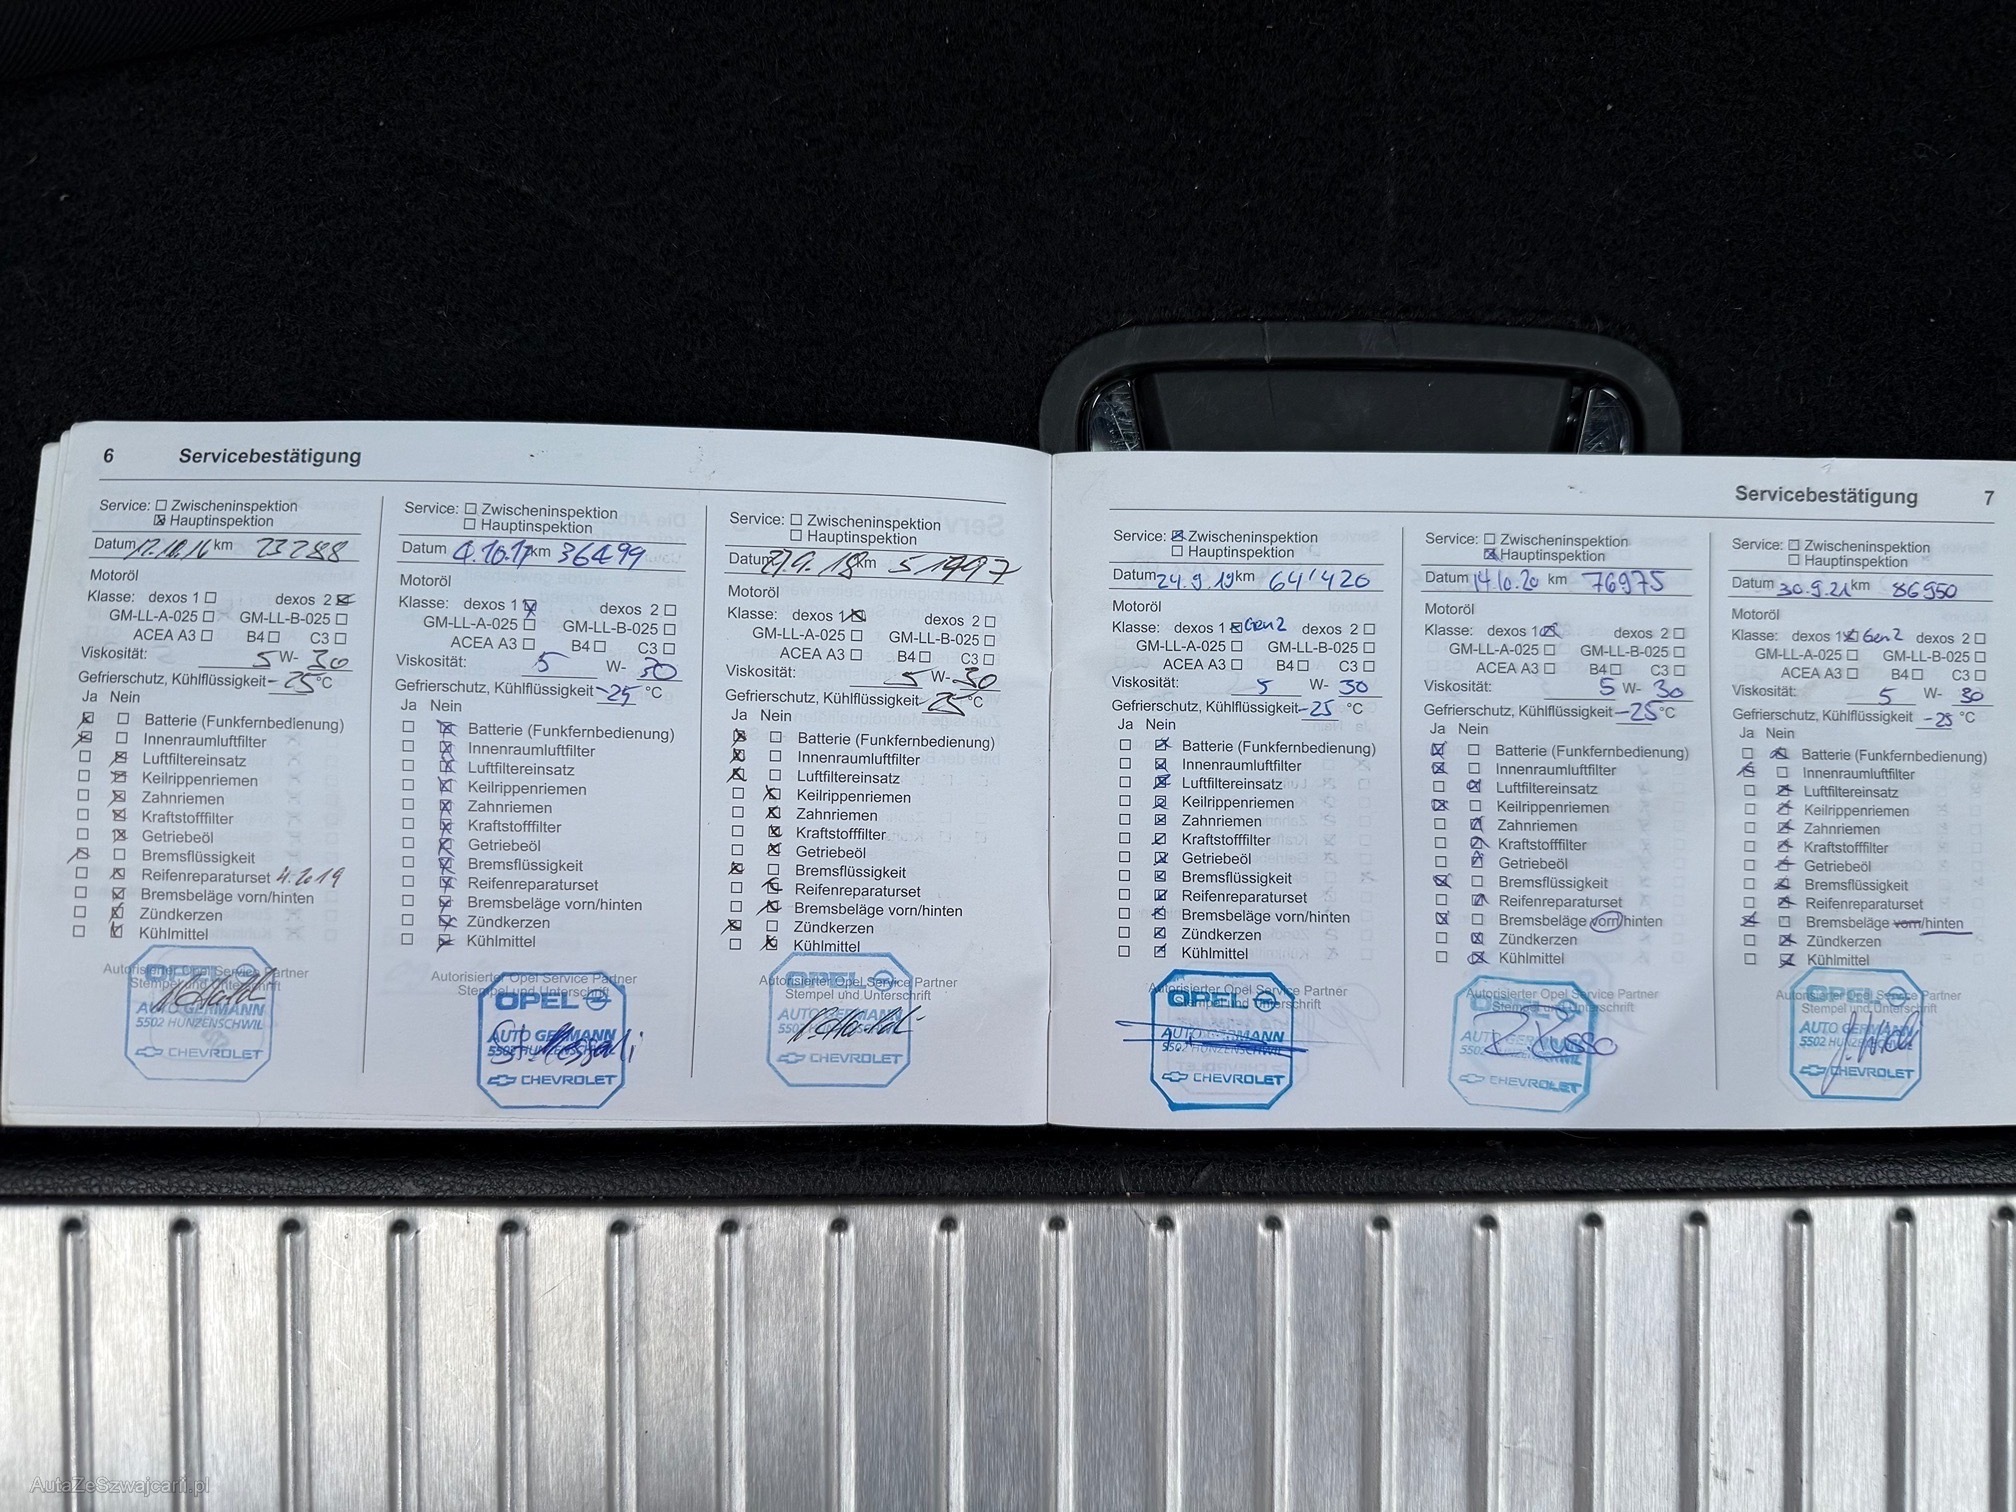 6 Servicebestätigung
Service: Zwischeninspektion
Hauptinspektion
Datum 17.10.16 km 23288
Motoröl
Klasse: dexos 1 dexos 2
GM-LL-A-025 GM-LL-B-025
ACEA A3 B4 C3
Viskosität: 5 W- 30
Gefrierschutz, Kühlflüssigkeit -25 °C
Ja Nein
Batterie (Funkfernbedienung)
Innenraumluftfilter
Luftfiltereinsatz
Keilrippenriemen
Zahnriemen
Kraftstofffilter
Getriebeöl
Bremsflüssigkeit
Reifenreparaturset 4.2019
Bremsbeläge vorn/hinten
Zündkerzen
Kühlmittel
Autorisierter Opel Service Partner
Stempel und Unterschrift
OPEL
AUTO GERMANN
5502 HUNZENSCHWIL
CHEVROLET
Service: Zwischeninspektion
Hauptinspektion
Datum 4.10.17 km 36499
Motoröl
Klasse: dexos 1 dexos 2
GM-LL-A-025 GM-LL-B-025
ACEA A3 B4 C3
Viskosität: 5 W- 30
Gefrierschutz, Kühlflüssigkeit -25 °C
Ja Nein
Batterie (Funkfernbedienung)
Innenraumluftfilter
Luftfiltereinsatz
Keilrippenriemen
Zahnriemen
Kraftstofffilter
Getriebeöl
Bremsflüssigkeit
Reifenreparaturset
Bremsbeläge vorn/hinten
Zündkerzen
Kühlmittel
Autorisierter Opel Service Partner
Stempel und Unterschrift
OPEL
AUTO GERMANN
5502 HUNZENSCHWIL
CHEVROLET
Service: Zwischeninspektion
Hauptinspektion
Datum 27.9.18 km 51997
Motoröl
Klasse: dexos 1 dexos 2
GM-LL-A-025 GM-LL-B-025
ACEA A3 B4 C3
Viskosität: 5 W- 30
Gefrierschutz, Kühlflüssigkeit -25 °C
Ja Nein
Batterie (Funkfernbedienung)
Innenraumluftfilter
Luftfiltereinsatz
Keilrippenriemen
Zahnriemen
Kraftstofffilter
Getriebeöl
Bremsflüssigkeit
Reifenreparaturset
Bremsbeläge vorn/hinten
Zündkerzen
Kühlmittel
Autorisierter Opel Service Partner
Stempel und Unterschrift
OPEL
AUTO GERMANN
5502 HUNZENSCHWIL
CHEVROLET
Servicebestätigung 7
Service: Zwischeninspektion
Hauptinspektion
Datum 24.9.19 km 64'420
Motoröl
Klasse: dexos 1 Gen2 dexos 2
GM-LL-A-025 GM-LL-B-025
ACEA A3 B4 C3
Viskosität: 5 W- 30
Gefrierschutz, Kühlflüssigkeit -25 °C
Ja Nein
Batterie (Funkfernbedienung)
Innenraumluftfilter
Luftfiltereinsatz
Keilrippenriemen
Zahnriemen
Kraftstofffilter
Getriebeöl
Bremsflüssigkeit
Reifenreparaturset
Bremsbeläge vorn/hinten
Zündkerzen
Kühlmittel
Autorisierter Opel Service Partner
Stempel und Unterschrift
OPEL
AUTO GERMANN
5502 HUNZENSCHWIL
CHEVROLET
Service: Zwischeninspektion
Hauptinspektion
Datum 14.10.20 km 76975
Motoröl
Klasse: dexos 1 dexos 2
GM-LL-A-025 GM-LL-B-025
ACEA A3 B4 C3
Viskosität: 5 W- 30
Gefrierschutz, Kühlflüssigkeit -25 °C
Ja Nein
Batterie (Funkfernbedienung)
Innenraumluftfilter
Luftfiltereinsatz
Keilrippenriemen
Zahnriemen
Kraftstofffilter
Getriebeöl
Bremsflüssigkeit
Reifenreparaturset
Bremsbeläge vorn/hinten
Zündkerzen
Kühlmittel
Autorisierter Opel Service Partner
Stempel und Unterschrift
OPEL
AUTO GERMANN
CHEVROLET
Service: Zwischeninspektion
Hauptinspektion
Datum 30.9.21 km 86950
Motoröl
Klasse: dexos 1 Gen2 dexos 2
GM-LL-A-025 GM-LL-B-025
ACEA A3 B4 C3
Viskosität: 5 W- 30
Gefrierschutz, Kühlflüssigkeit -25 °C
Ja Nein
Batterie (Funkfernbedienung)
Innenraumluftfilter
Luftfiltereinsatz
Keilrippenriemen
Zahnriemen
Kraftstofffilter
Getriebeöl
Bremsflüssigkeit
Reifenreparaturset
Bremsbeläge vorn/hinten
Zündkerzen
Kühlmittel
Autorisierter Opel Service Partner
Stempel und Unterschrift
OPEL
AUTO GERMANN
5502 HUNZENSCHWIL
CHEVROLET
AutaZeSzwajcarii.pl